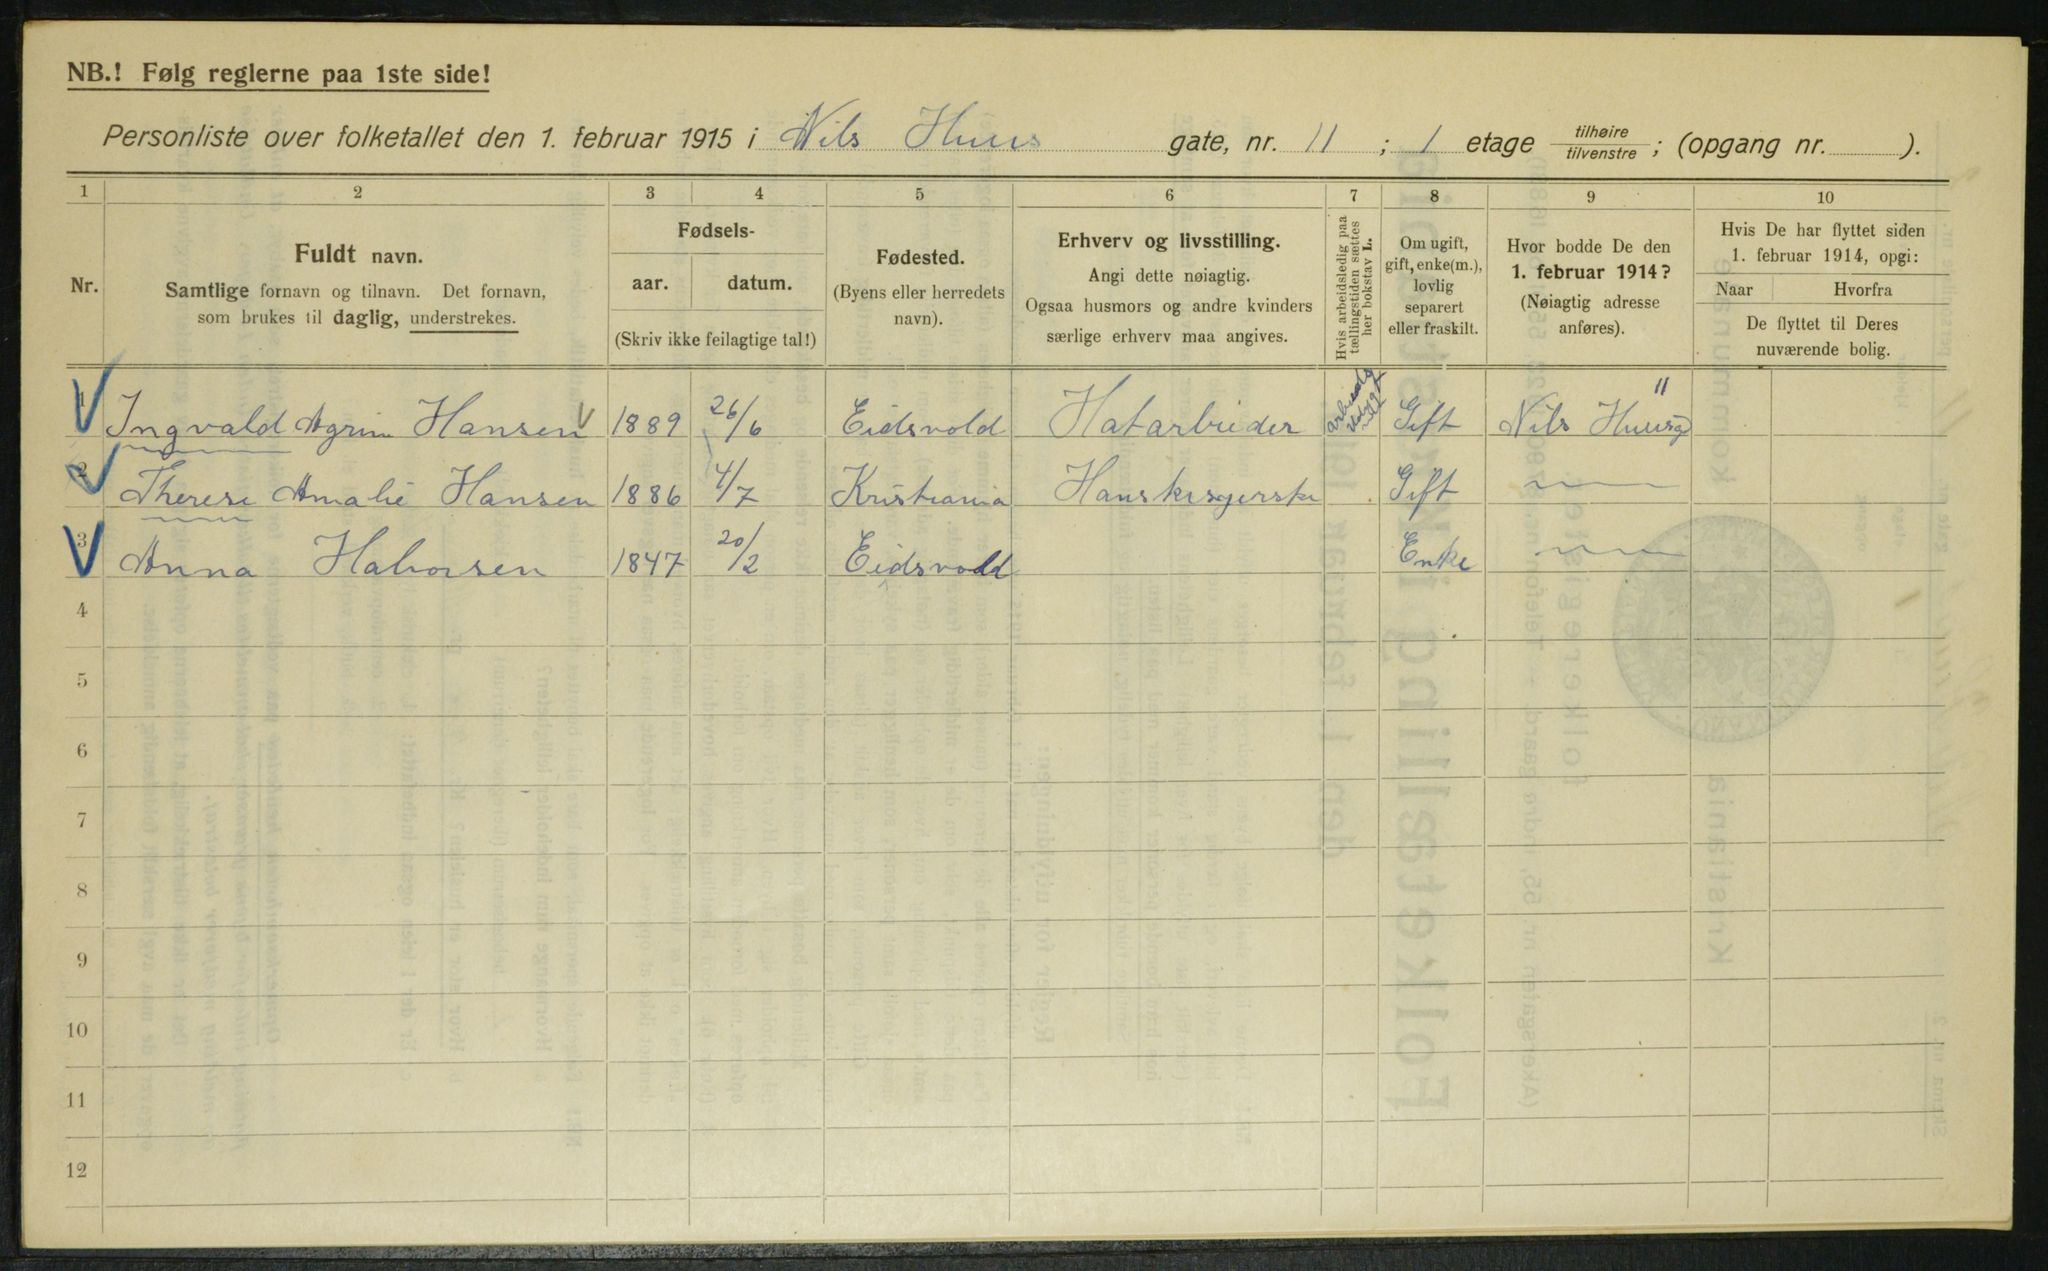 NB.! Følg reglerne paa 1ste side!
Personliste over folketallet den 1. februar 1915 i Nils Huus gate, nr. 11 ; 1 etage tilhøire / tilvenstre ; (opgang nr. ).
1 2 3 4 5 6 7 8 9 10
Nr.
Fuldt navn.
Samtlige fornavn og tilnavn. Det fornavn,
som brukes til daglig, understrekes.
Fødsels-
aar. datum.
(Skriv ikke feilagtige tal!)
Fødested.
(Byens eller herredets
navn).
Erhverv og livsstilling.
Angi dette nøiagtig.
Ogsaa husmors og andre kvinders
særlige erhverv maa angives.
Hvis arbeidsledig paa
tællingstiden sættes
her bokstav L.
Om ugift,
gift, enke(m.),
lovlig
separert
eller fraskilt.
Hvor bodde De den
1. februar 1914?
(Nøiagtig adresse
anføres).
Hvis De har flyttet siden
1. februar 1914, opgi:
Naar Hvorfra
De flyttet til Deres
nuværende bolig.
1 Ingvald Hansen 1889 26/6 Eidsvold Hatarbeider Gift Nils Huusg 11
2 Therese Amalie Hansen 1886 4/7 Kristiania Hanskesyerske Gift
3 Anna Halvorsen 1847 20/2 Eidsvold Enke
4
5
6
7
8
9
10
11
12